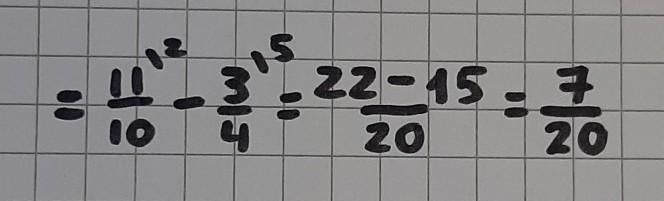 = 11/10 \2 - 3/4 \5 = 22-15/20 = 7/20